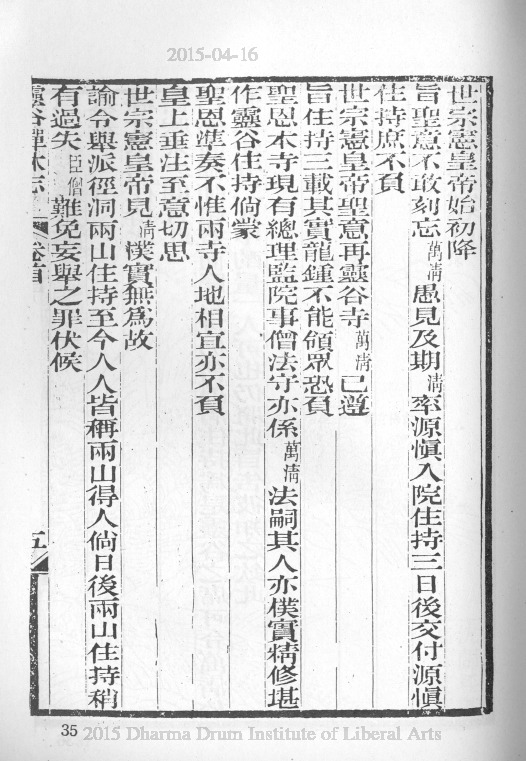 2015-04-16
世宗憲皇帝始初降
旨聖意不敢刻忘萬清愚見及期清率源慎入院住持三日後交付源慎
住持庶不負
世宗憲皇帝聖意再靈谷寺萬清已遵
旨住持三載其實龍鍾不能領眾恐負
聖恩本寺現有總理監院事僧法守亦係萬清法嗣其人亦樸實精修堪
作靈谷住持倘蒙
聖恩準奏不惟兩寺人地相宜亦不負
皇上垂注至意切思
世宗憲皇帝見清樸實無為故
諭令舉派徑洞兩山住持至今人人皆稱兩山得人倘日後兩山住持稍
有過失臣僧難免妄舉之罪伏候
靈谷禪林志
卷首
五
35 2015 Dharma Drum Institute of Liberal Arts